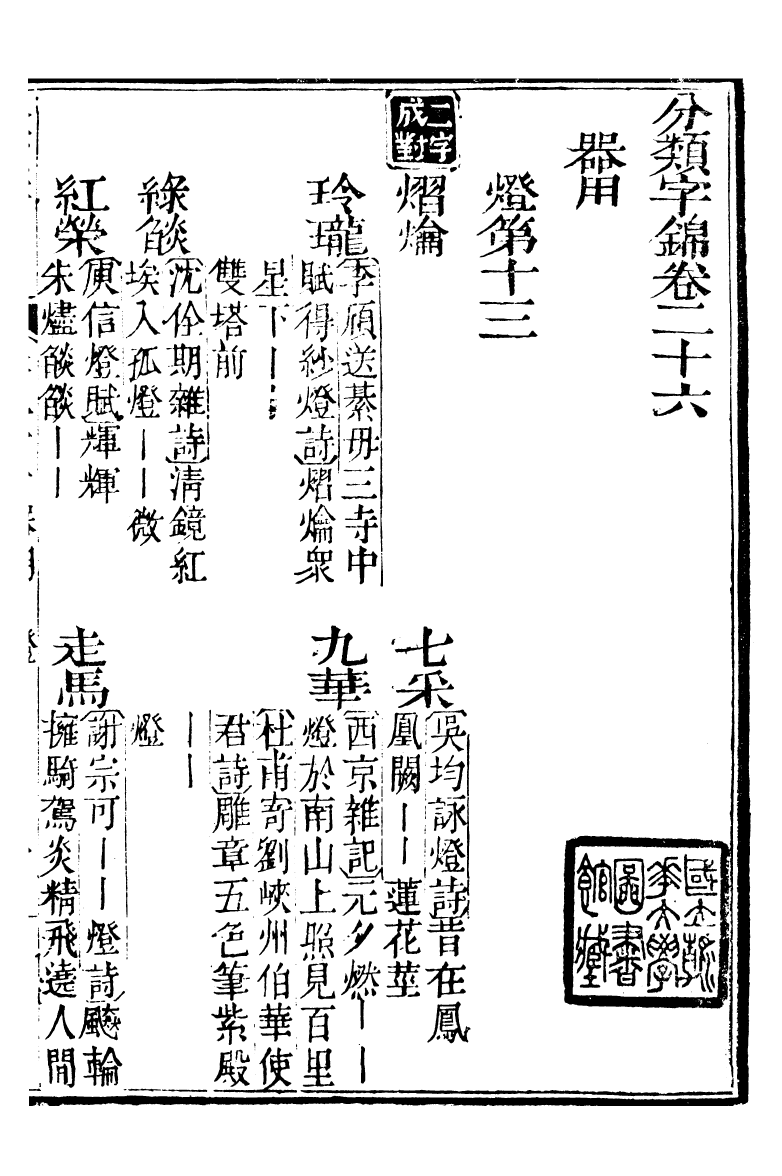 分類字錦卷二十六
器用
燈第十三
二字
成對
熠爚
七采
吳均詠燈詩昔在鳳
凰闕丨丨蓮花莖
玲瓏
李頎送綦毋三寺中
賦得紗燈詩熠爚眾
星下丨丨
雙塔前
九華
西京雜記元夕燃丨丨
燈於南山上照見百里
杜甫寄劉峽州伯華使
君詩雕章五色筆紫殿
丨丨
燈
綠燄
沈佺期雜詩清鏡紅
埃入孤燈丨丨微
紅榮
庾信燈賦輝輝
朱燼燄燄丨丨
走馬
謝宗可丨丨燈詩飈輪
擁騎駕炎精飛遶人間
國立清
華大學
圖書
館藏